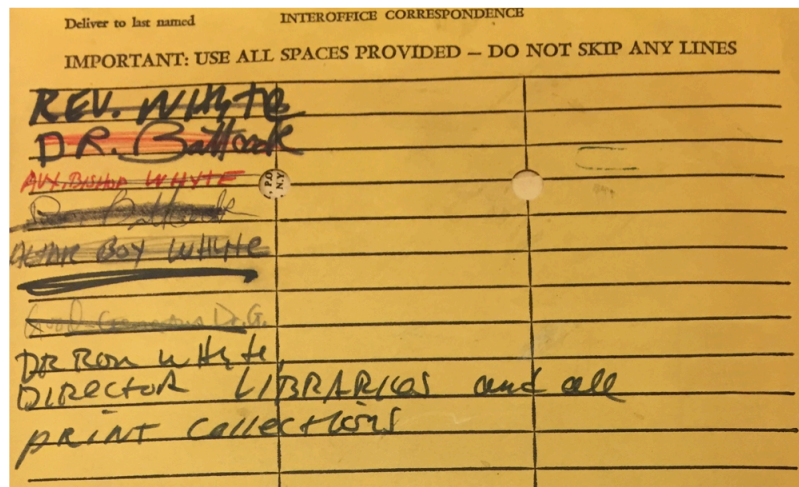 Deliver to last named
INTEROFFICE CORRESPONDENCE
IMPORTANT: USE ALL SPACES PROVIDED – DO NOT SKIP ANY LINES
REV. WHyTE
DR. Battcock
AUX. BISHOP WHYTE
Battcock
ALTAR BOY WHyte
Good Dr. G.
DR RON WHyte,
DIRECTOR LIBRARIES and all
PRINT Collections